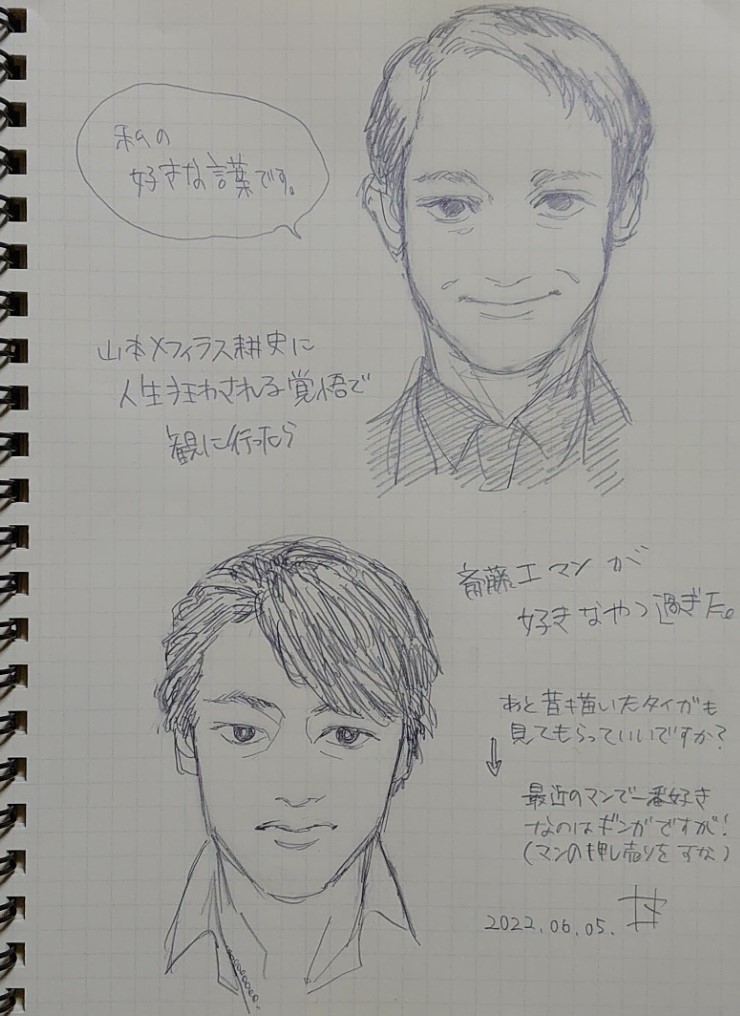 私の
好きな言葉です。
山本メフィラス耕史に
人生狂わされる覚悟で
観に行ったら
斎藤工マンが
好きなやつ過ぎた。
あと昔描いたタイガも
見てもらっていいですか?
↓
最近のマンで一番好き
なのはギンガですが!
(マンの押し売りをすな)
2022.06.05.